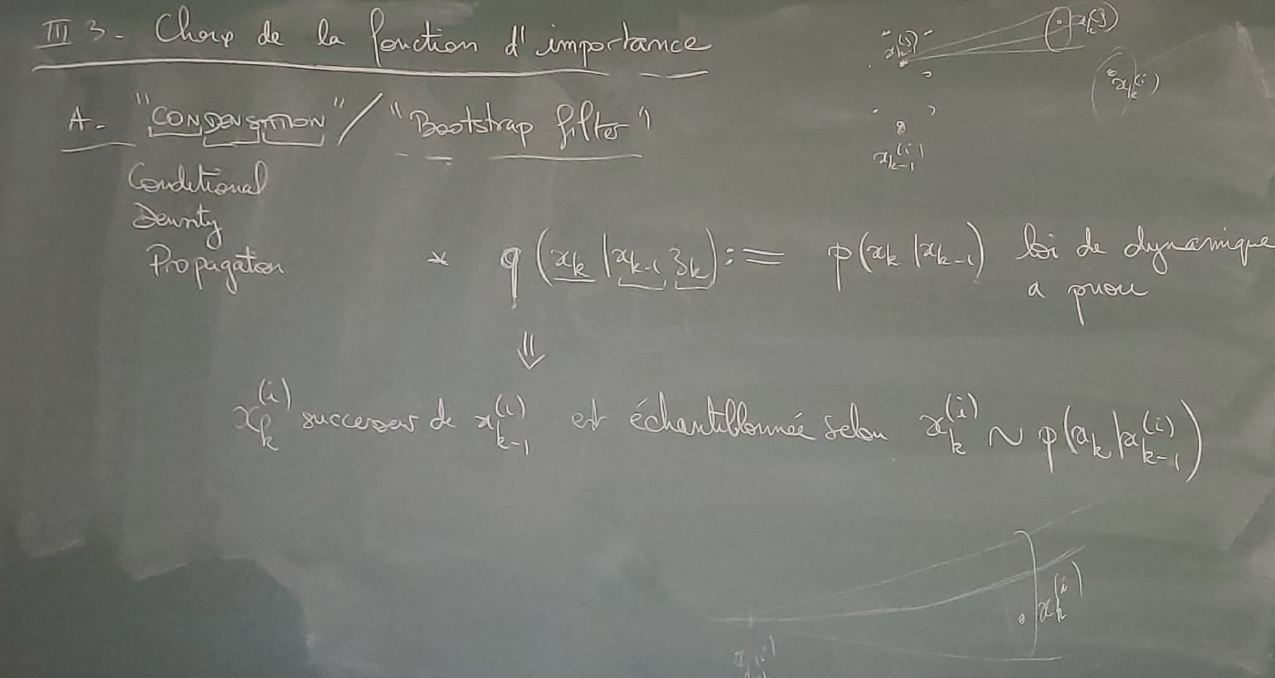 III 3- Choix de la fonction d'importance
A- "CONDENSATION" / "Bootstrap filter"
Conditional
Density
Propagation
* q(x_k | x_{k-1}, z_k) := p(x_k | x_{k-1}) loi de dynamique
a priori
⇓
x_k^{(i)} successeur de x_{k-1}^{(i)} est échantillonnée selon x_k^{(i)} ~ p(x_k | x_{k-1}^{(i)})
x_k^{(j)}
x_k^{(i)}
x_{k-1}^{(i)}
x_k^{(i)}